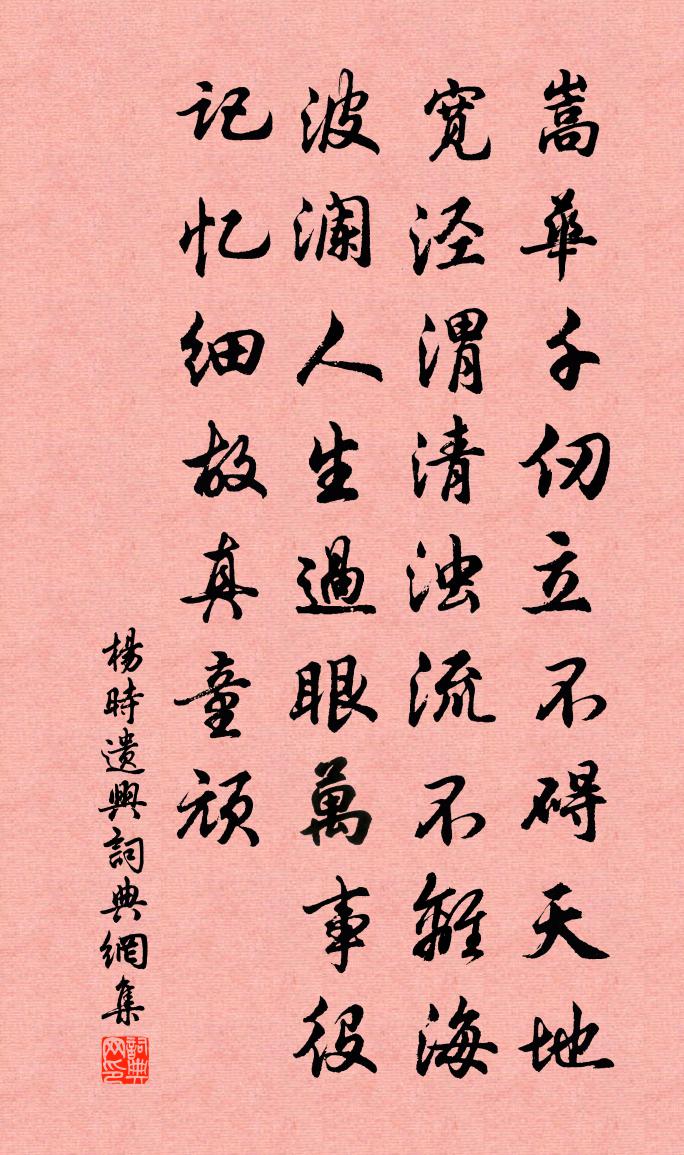 嵩華千仞立不碍天地
寛泾渭清浊流不離海
波澜人生過眼萬事役
记忆细故真童顽
楊時遺興詞典網集
詞典网印